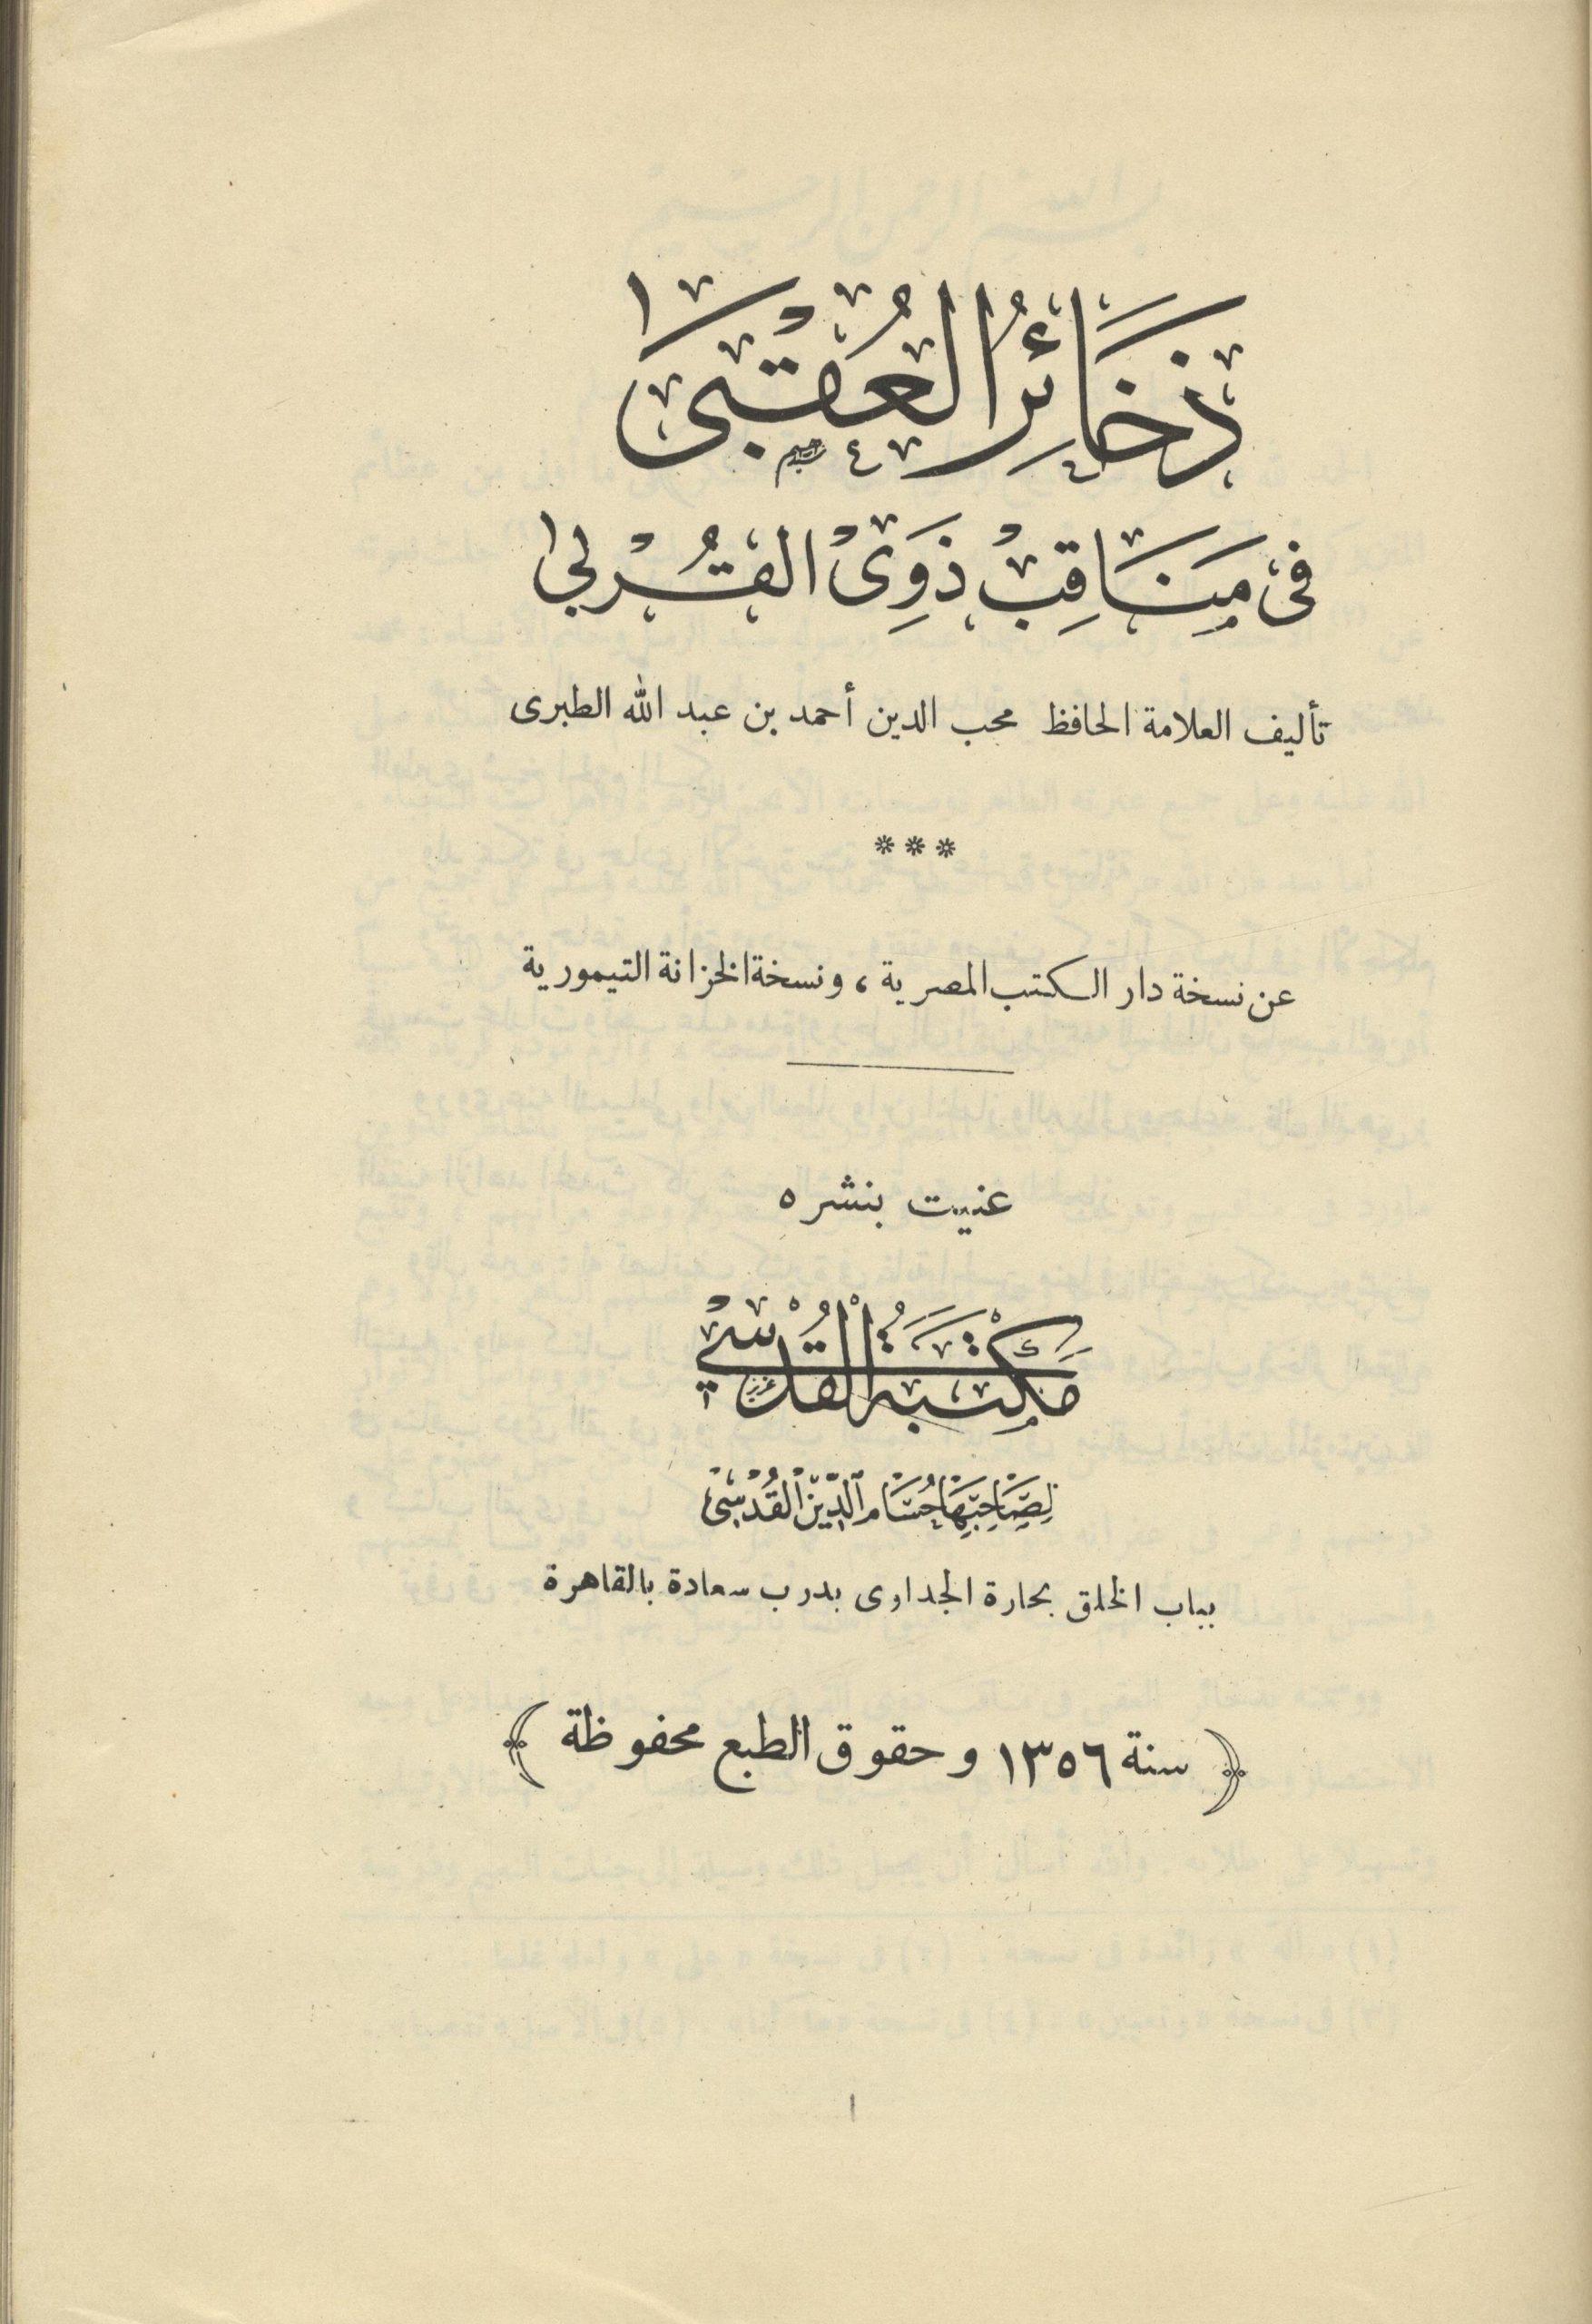 ذَخَائِرُ العُقْبَى
فى مَنَاقِبْ ذَوِىْ القُرْبى
تأليف العلامة الحافظ محب الدين أحمد بن عبد الله الطبرى
***
عن نسخة دار الكتب المصرية ، ونسخة الخزانة التيمورية
عنيت بنشره
مَكْتَبَةُ الْقُدْسِي
لِصَاحِبِهَا حُسَام الدِّيْن الْقُدْسِىْ
بباب الخلق بحارة الجداوى بدرب سعادة بالقاهرة
﴿ سنة ١٣٥٦ وحقوق الطبع محفوظة ﴾
١